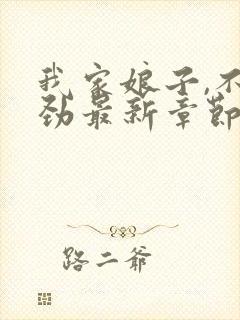 我家娘子,不
劲最新章節
路二爷